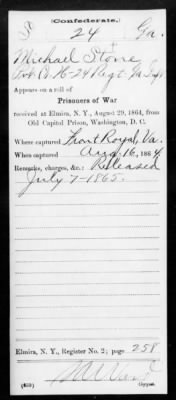 (Confederate.)
S 24 Ga.
Michael Stone
Pvt. Co. B 24 Regt Ga Inf
Appears on a roll of
Prisoners of War
received at Elmira, N. Y., August 29, 1864, from
Old Capitol Prison, Washington, D. C.
Where captured Front Royal, Va.
When captured Aug. 16, 1864.
Remarks, charges, &c.: Released
July 7-1865.
Elmira, N. Y., Register No. 2; page 258
(639)
Copyist.